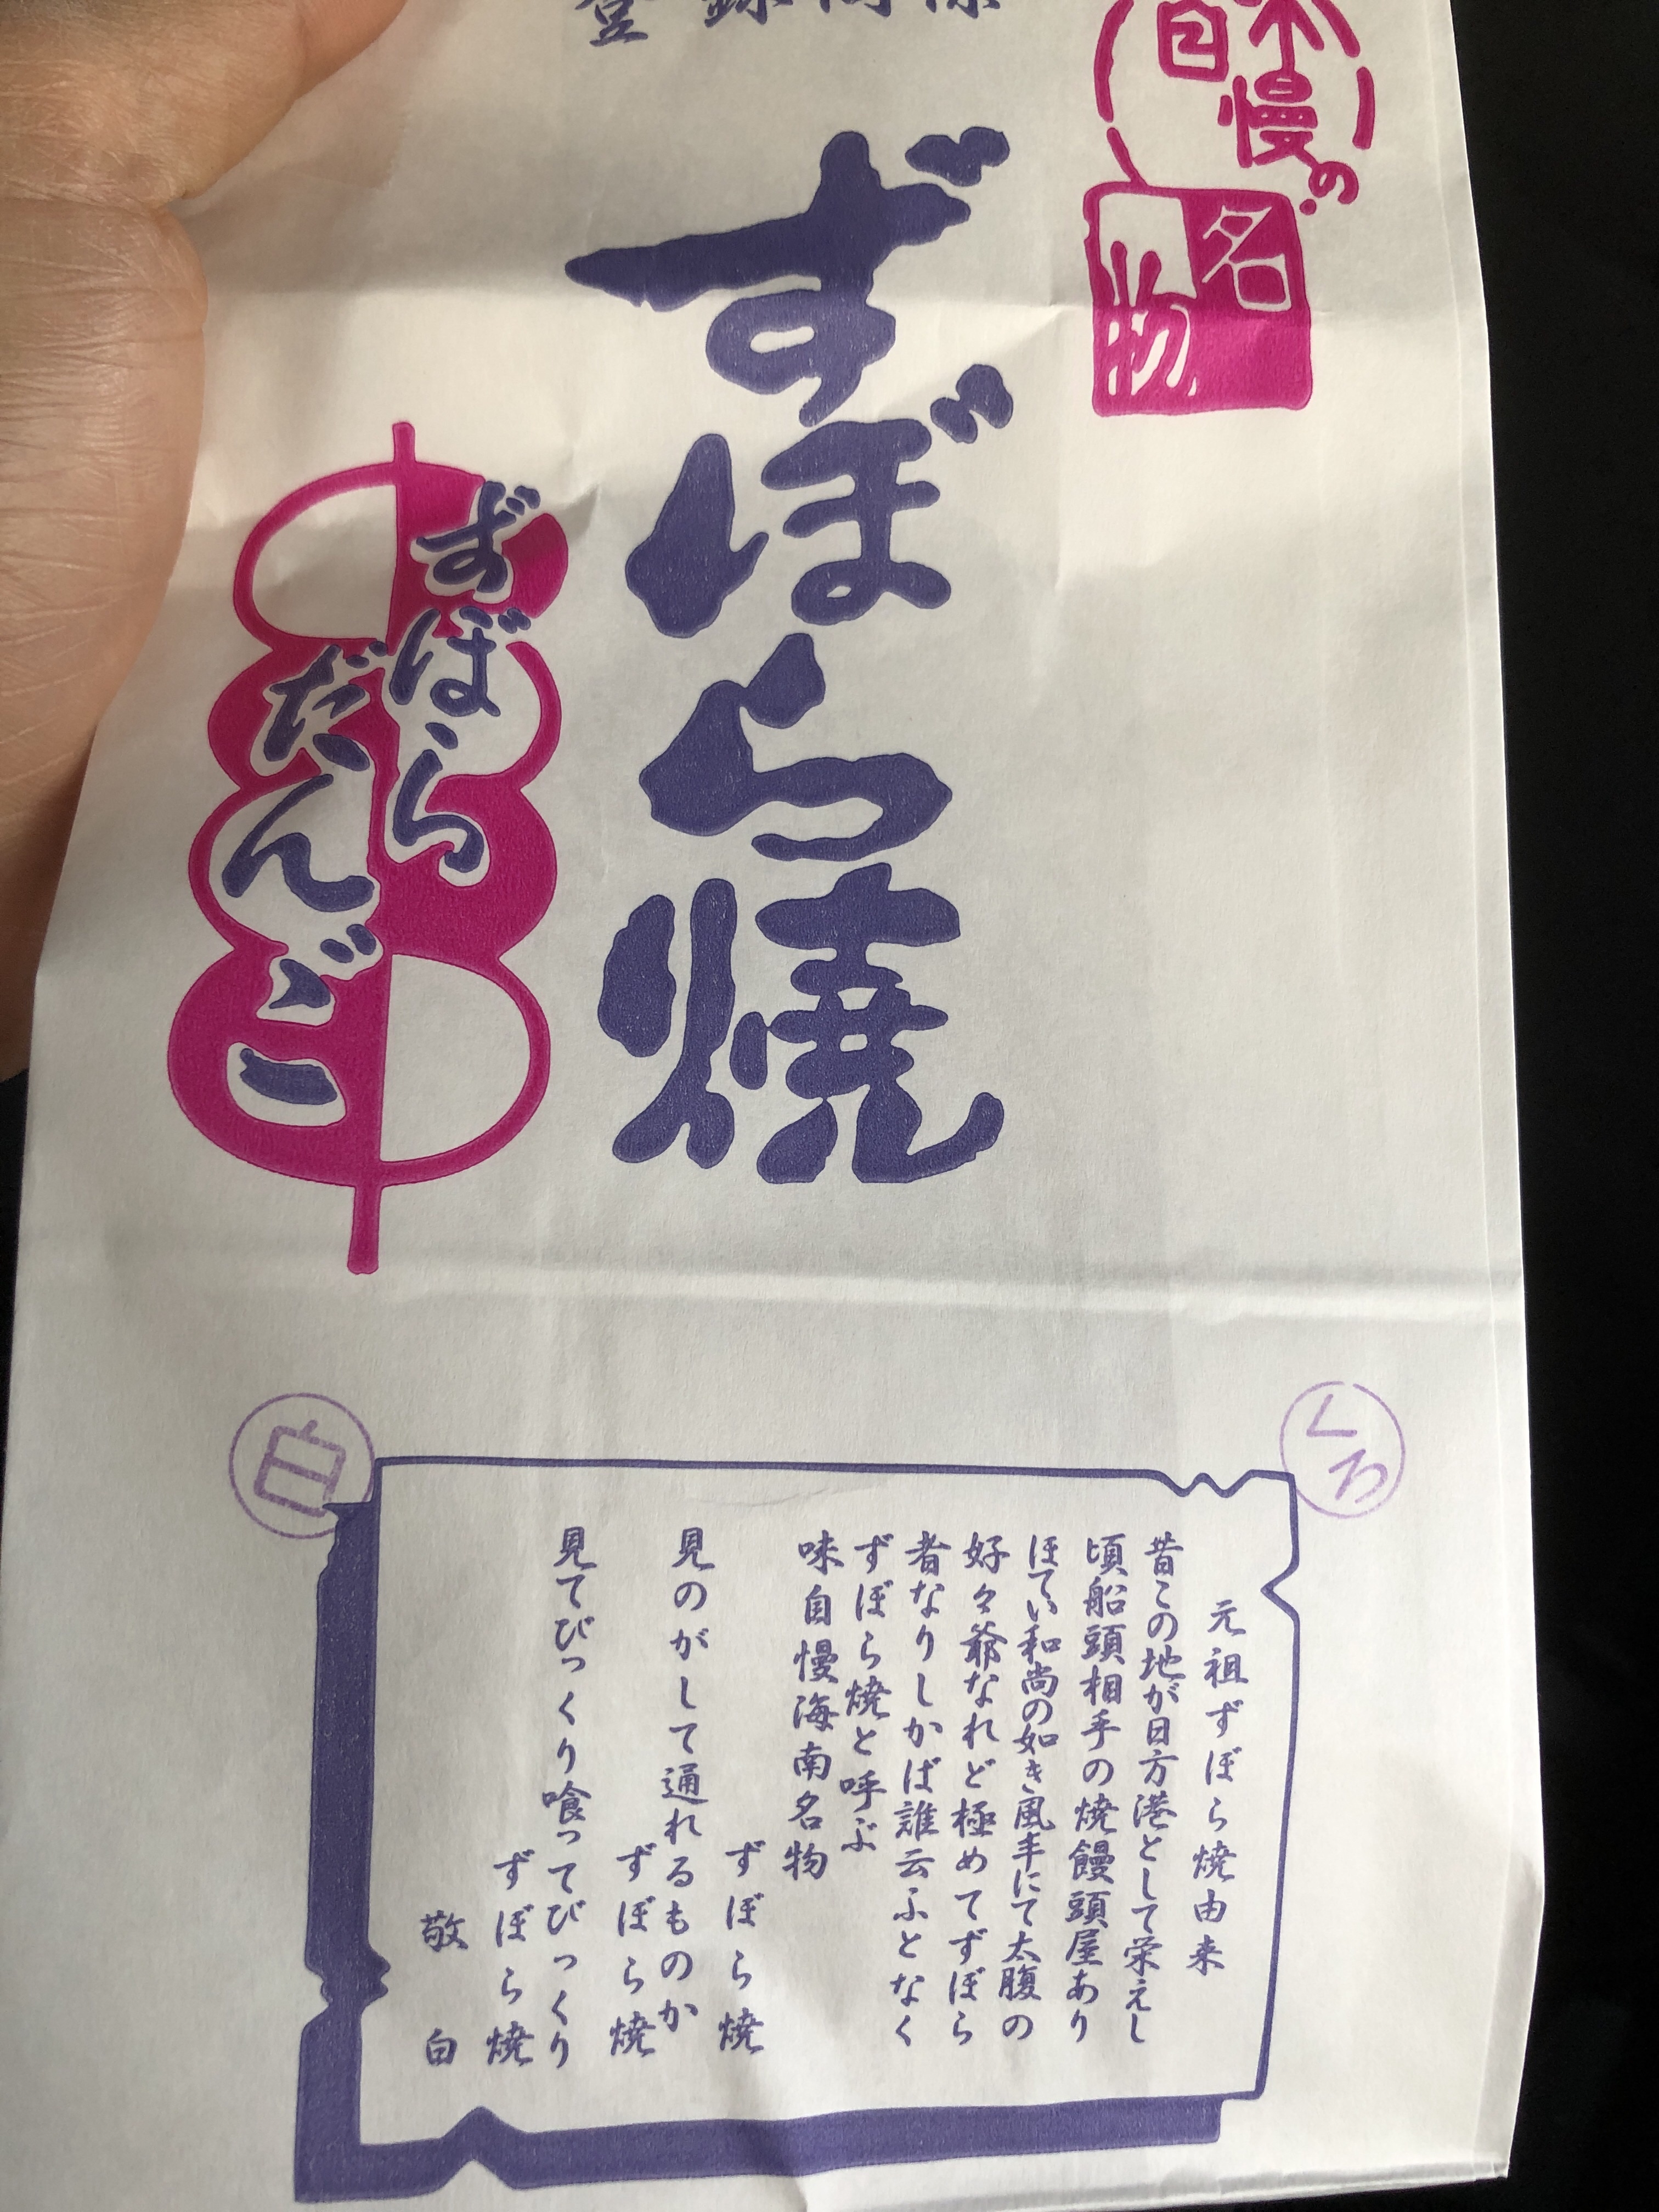 自慢の
名物
登録商標
ずぼら焼
ずぼら
だんご
くろ
白
元祖ずぼら焼由来
昔この地が日方港として栄えし
頃船頭相手の焼饅頭屋あり
ほてい和尚の如き風丰にて太腹の
好々爺なれど極めてずぼら
者なりしかば誰云ふとなく
ずぼら焼と呼ぶ
味自慢海南名物
ずぼら焼
見のがして通れるものか
ずぼら焼
見てびっくり喰ってびっくり
ずぼら焼
敬白